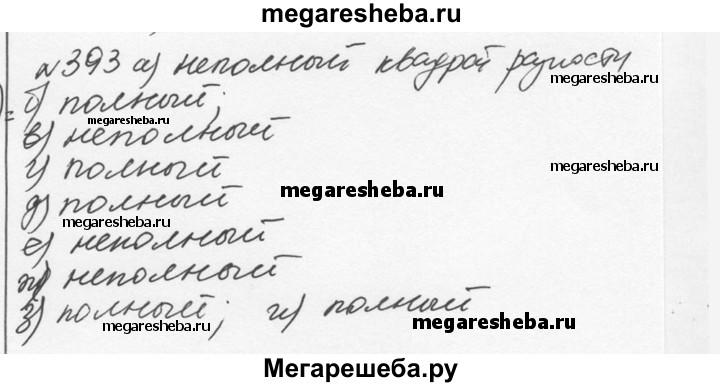 megaresheba.ru
№393 а) неполный квадрат разности
megaresheba.ru
б) полный;
megaresheba.ru
в) неполный
г) полный
megaresheba.ru
megaresheba.ru
д) полный
megaresheba.ru
е) неполный
ж) неполный
з) полный; и) полный
megaresheba.ru
megaresheba.ru
Мегарешеба.ру